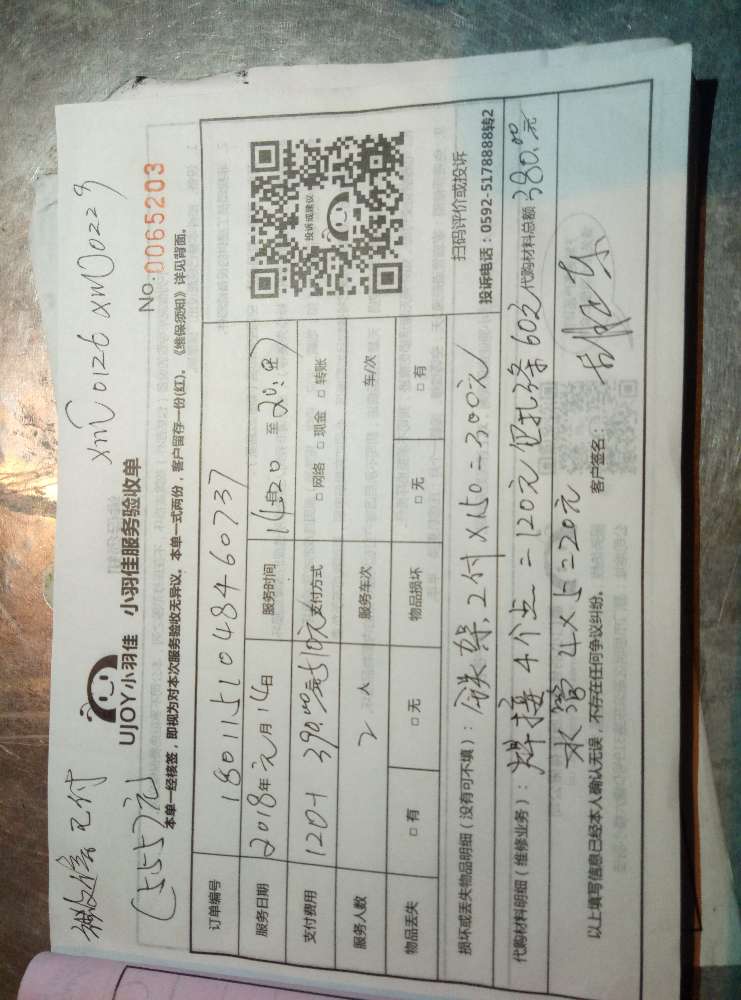 微信已付 xmC0126 xmC0223
UJOY小羽佳 小羽佳服务验收单 No.0065203
本单一经核签，即视为对本次服务验收无异议。本单一式两份，客户留存一份(红)。《维保须知》详见背面。
订单编号 18011510484 60737
服务日期 2018年元月14日 服务时间 至
支付费用 120+ 390.00元 510元 支付方式 □网络 □现金 □转账
服务人数 2人 服务车次 车/次
物品丢失 □有 □无 物品损坏 □无 □有
投诉或建议
扫码评价或投诉
投诉电话：0592-5178888转2
损坏或丢失物品明细（没有可不填）： 铁架,2付×150=300元
代购材料明细（维修业务）： 焊接4个点=120元 包扎条602 代购材料总额 380.00元
水管4×5=20元
以上填写信息已经本人确认无误，不存在任何争议纠纷。 客户签名：